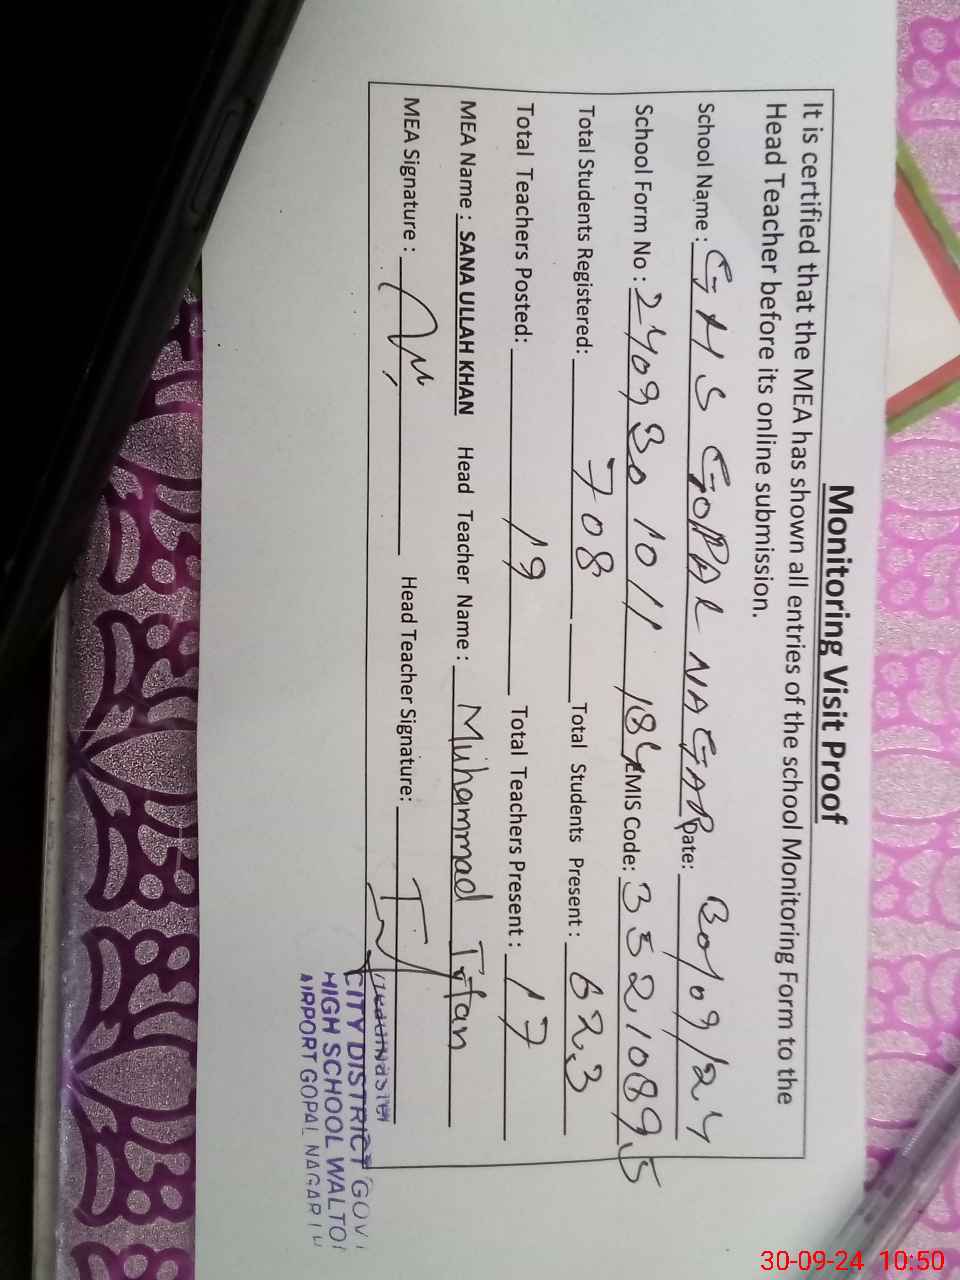 Monitoring Visit Proof
It is certified that the MEA has shown all entries of the school Monitoring Form to the
Head Teacher before its online submission.
School Name : GHS GOPAL NAGAR Date: 30/09/24
School Form No : 24093010 11 184 EMIS Code: 35210895
Total Students Registered: 708 Total Students Present : 623
Total Teachers Posted: 19 Total Teachers Present : 17
MEA Name : SANA ULLAH KHAN Head Teacher Name : Muhammad Irfan
MEA Signature : Head Teacher Signature:
CITY DISTRICT GOVT
HIGH SCHOOL WALTO
AIRPORT GOPAL NAGAR
30-09-24 10:50